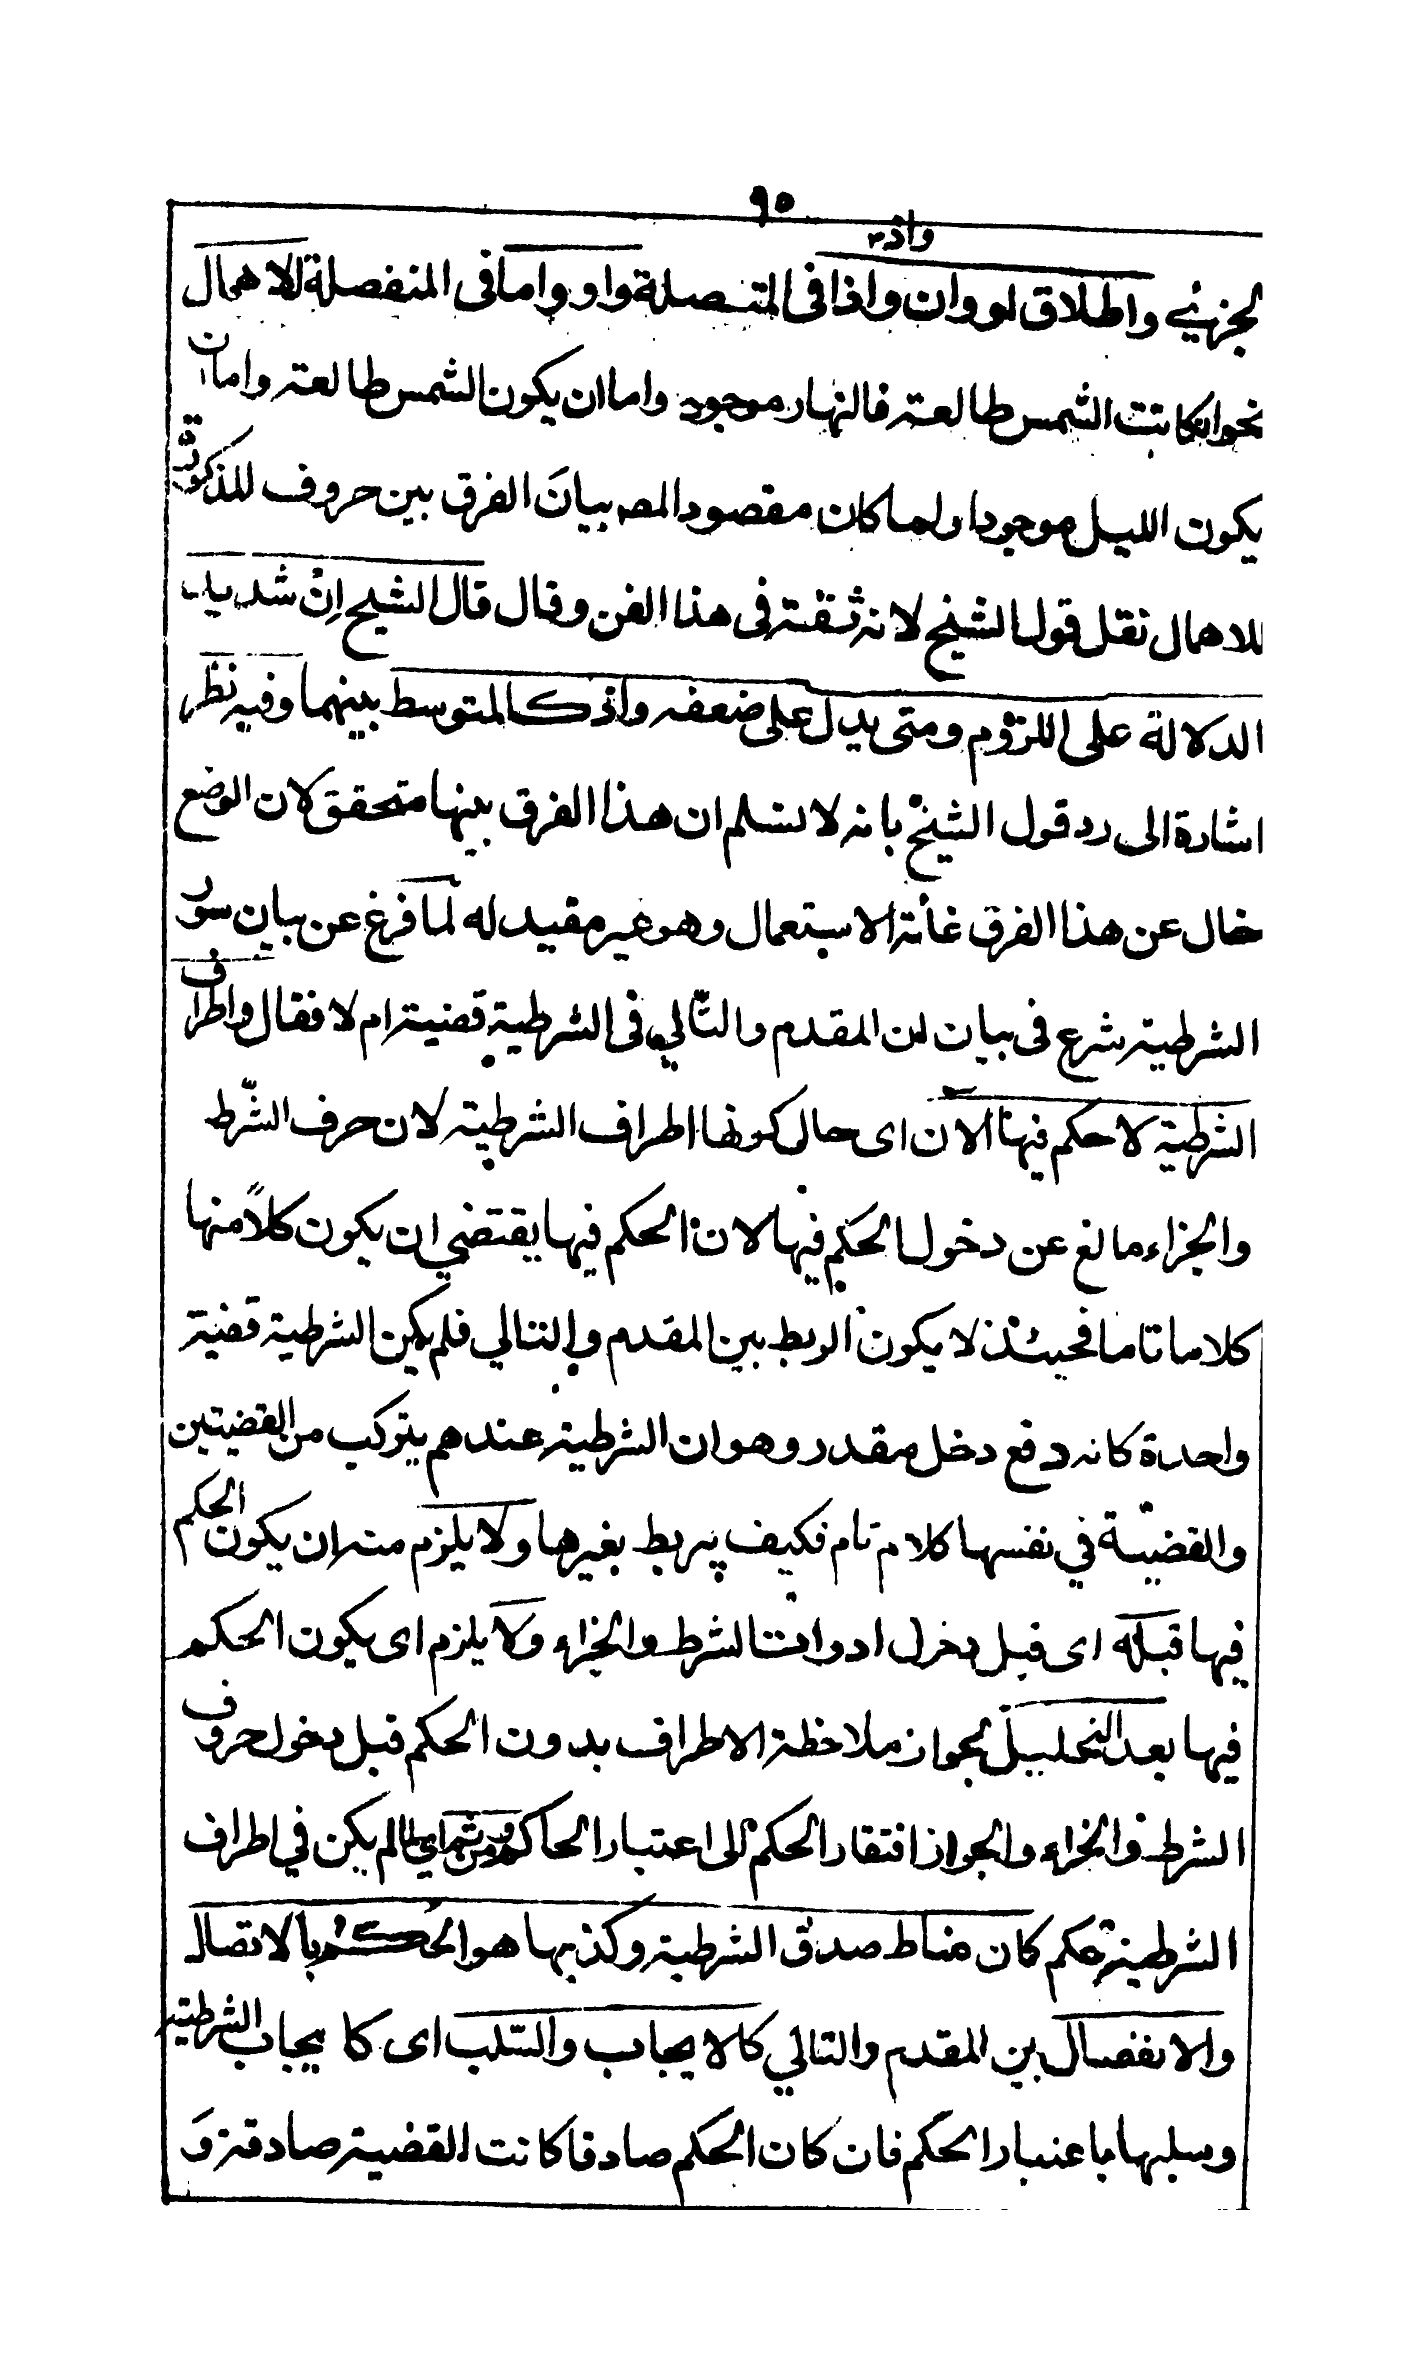 ٩٥
واذ
الجزئي واطلاق لو وان واذا فى المتصلة واو واما فى المنفصلة للاهمال
نحو انكانت الشمس طالعته فالنهار موجود واما ان يكون الشمس طالعته واما ان
يكون الليل موجودا ولما كان مقصود المصه بيان الفرق بين حروف المذكورة
للاهمال نقل قول الشيخ لانه ثقته فى هذا الفن وقال قال الشيخ اِنْ شديد
الدلالة على اللزوم ومتى يدل على ضعفه واذ كالمتوسط بينهما وفيه نظر
اشارة الى رد قول الشيخ بانه لا نسلم ان هذا الفرق بينها متحقق لان الوضع
خال عن هذا الفرق غائة الاستعمال وهو غير مقيد له لما فرغ عن بيان سور
الشرطية شرع فى بيان ان المقدم والتالي فى الشرطية قضية ام لا فقال واطراف
الشرطية لا حكم فيها الان اى حال كونها اطراف الشرطية لان حرف الشرط
والجزاء مانع عن دخول الحكم فيها لان الحكم فيها يقتضي ان يكون كلاً منها
كلاما تاما فحينئذ لا يكون الربط بين المقدم والتالي فلم يكن الشرطية قضية
واحدة كانه دفع دخل مقدر وهو ان الشرطية عندهم يتركب من القضيتين
والقضيّة في نفسها كلام تام فكيف يربط بغيرها ولا يلزم منه ان يكون الحكم
فيها قبله اى قبل دخول ادوات الشرط والجزاء ولا يلزم اى يكون الحكم
فيها بعد التحليل لجواز ملاحظة الاطراف بدون الحكم قبل دخول حروف
الشرط والجزاء والجواز افتقار الحكم الى اعتبار الحاكم ومن ثم اي لما لم يكن في اطراف
الشرطية حكم كان مناط صدق الشرطية وكذبها هو الحكم بالاتصال
والانفصال بين المقدم والتالي كالايجاب والسّلب اى كا يجاب الشرطية
وسلبها باعتبار الحكم فان كان الحكم صادقا كانت القضية صادقة وَ